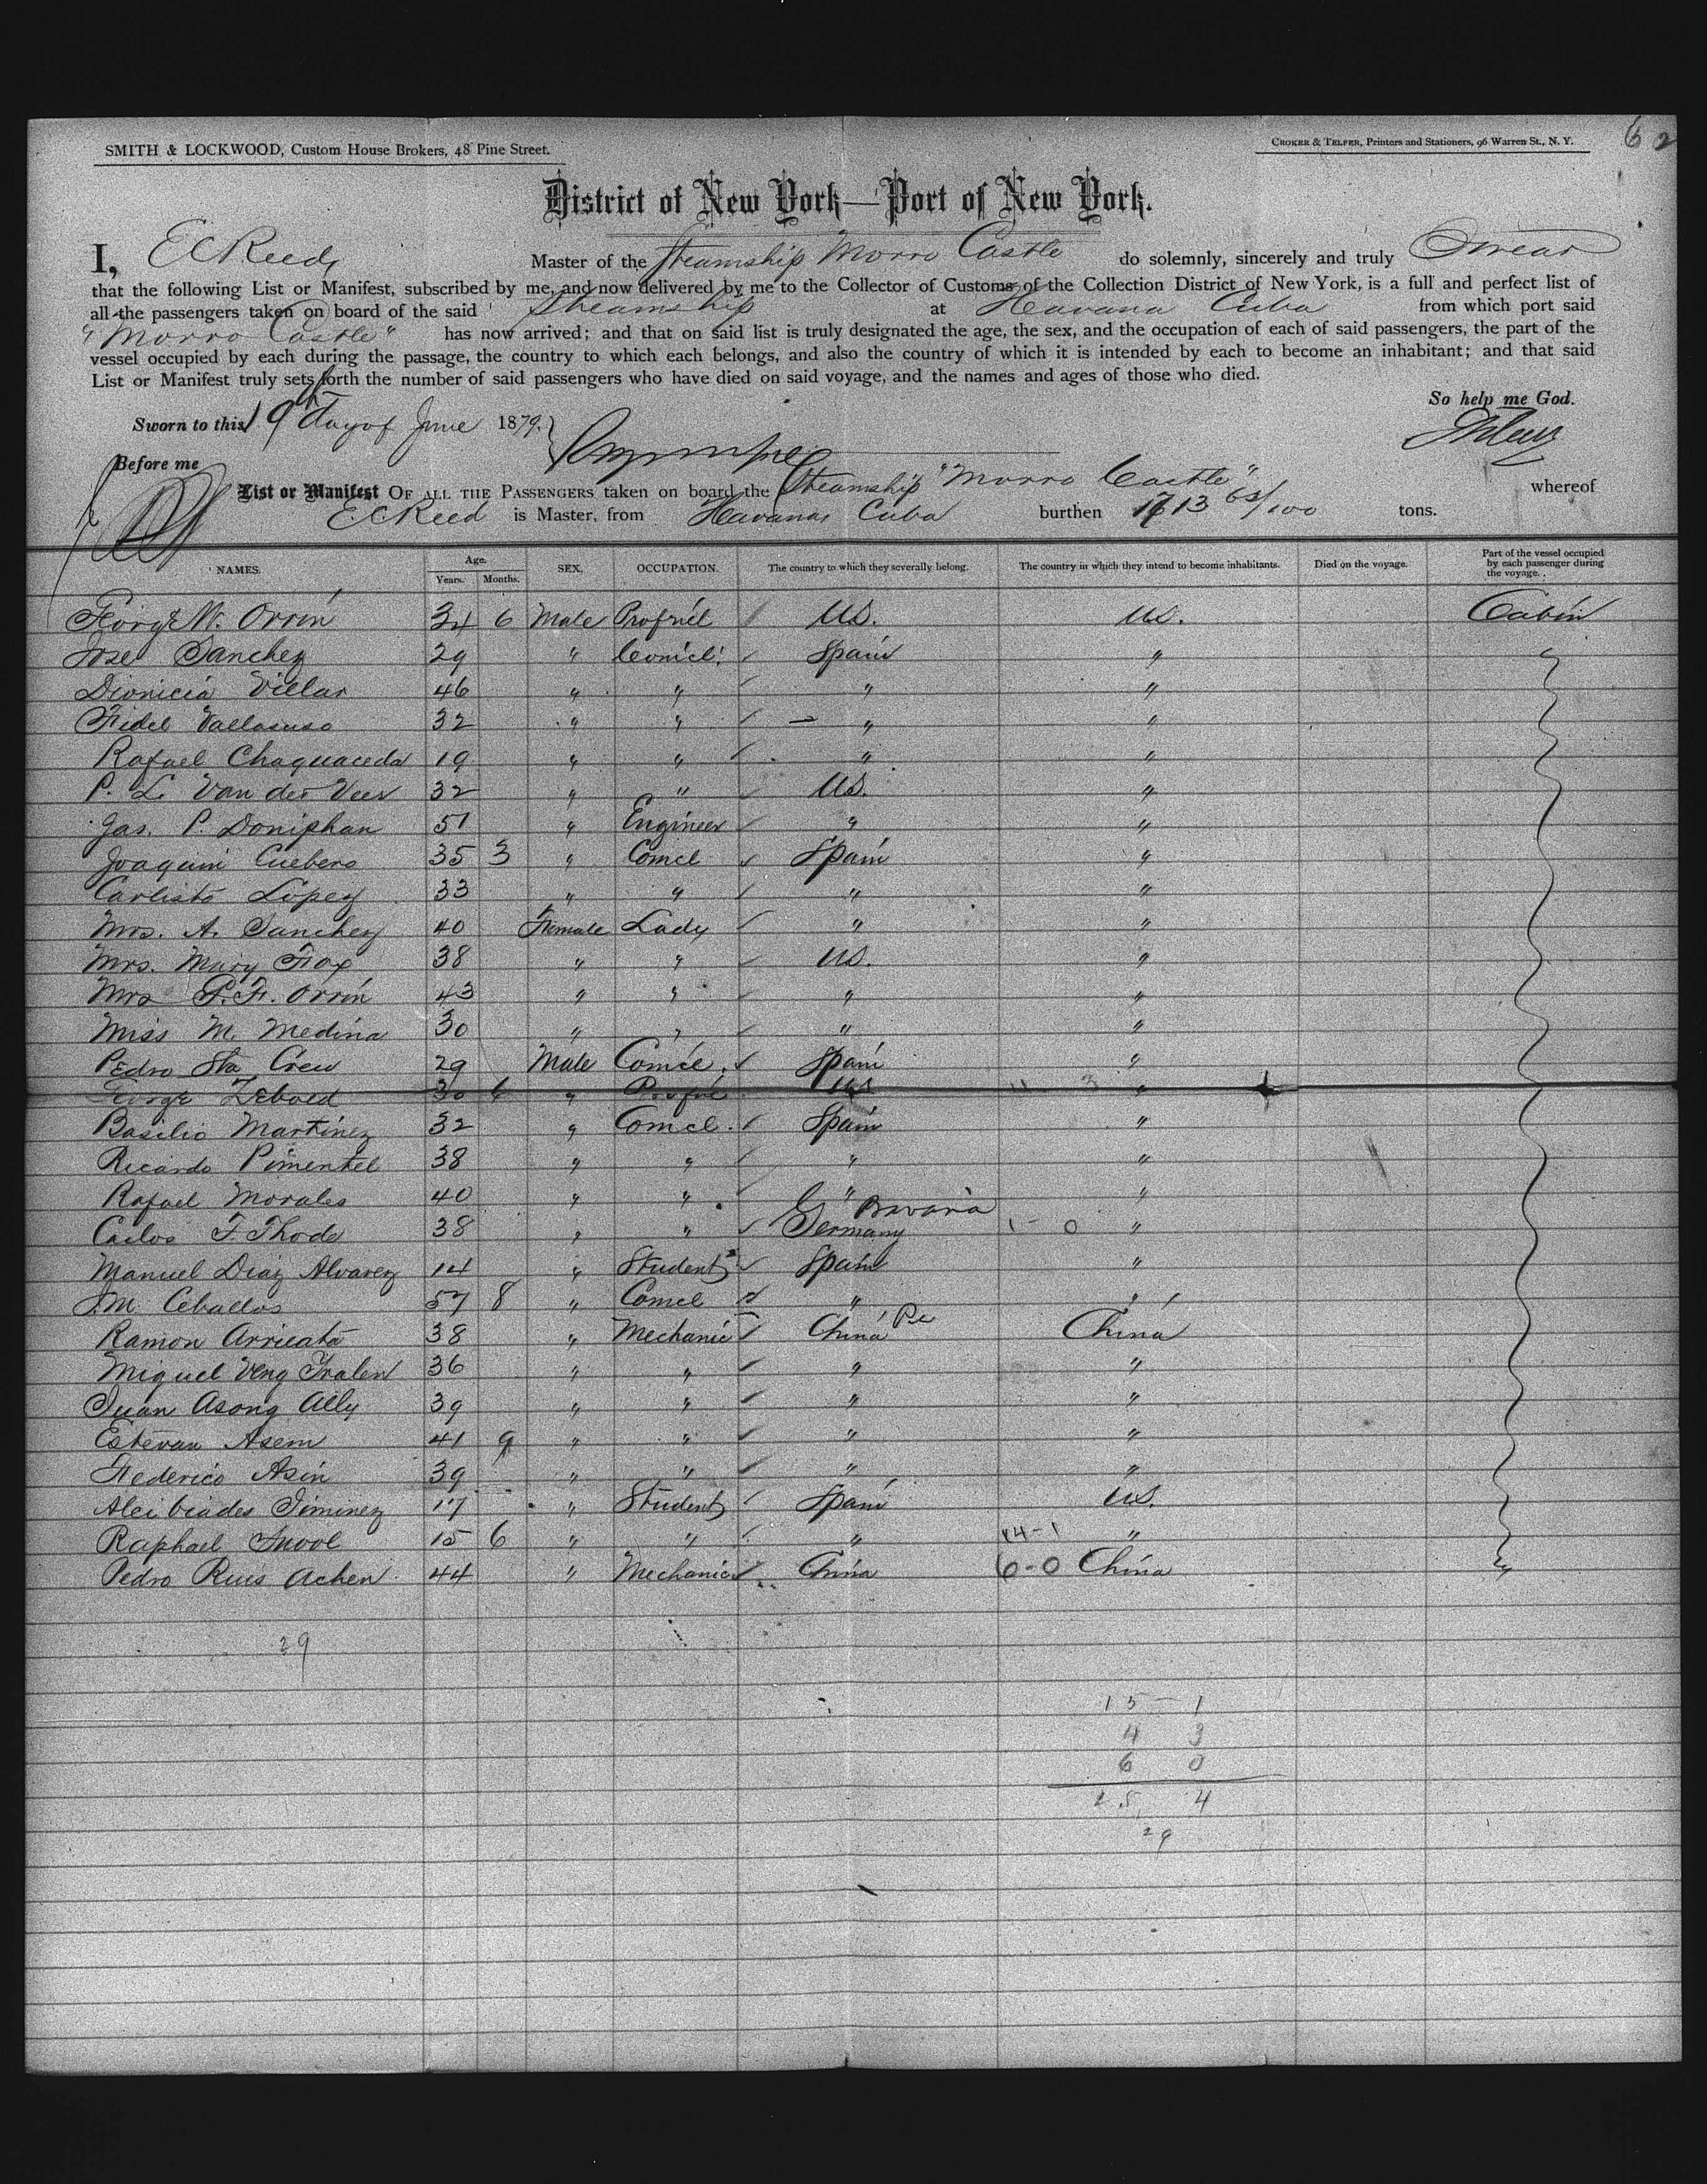 62
SMITH & LOCKWOOD, Custom House Brokers, 48 Pine Street.
CROKER & TELFER, Printers and Stationers, 96 Warren St., N. Y.
District of New York—Port of New York.
I, E C Reed, Master of the Steamship Morro Castle do solemnly, sincerely and truly Swear
that the following List or Manifest, subscribed by me, and now delivered by me to the Collector of Customs of the Collection District of New York, is a full and perfect list of
all the passengers taken on board of the said Steamship at Havana Cuba from which port said
"Morro Castle" has now arrived; and that on said list is truly designated the age, the sex, and the occupation of each of said passengers, the part of the
vessel occupied by each during the passage, the country to which each belongs, and also the country of which it is intended by each to become an inhabitant; and that said
List or Manifest truly sets forth the number of said passengers who have died on said voyage, and the names and ages of those who died.
So help me God.
Sworn to this 19th day of June 1879.
Before me
List or Manifest OF ALL THE PASSENGERS taken on board the Steamship "Morro Castle" whereof
E C Reed is Master, from Havana, Cuba burthen 1713 65/100 tons.
NAMES. Age. Years. Months. SEX. OCCUPATION. The country to which they severally belong. The country in which they intend to become inhabitants. Died on the voyage. Part of the vessel occupied by each passenger during the voyage.
George W. Orrin 34 6 Male Propriet US. US. Cabin
Jose Sanchez 29 " Comcl. Spain "
Dionicia Villar 46 " " " "
Fidel Vallasuso 32 " " " "
Rafael Chaquaceda 19 " " " "
P. L. Van der Veer 32 " " US. "
Jas. P. Doniphan 51 " Engineer " "
Joaquin Cuebero 35 3 " Comcl Spain "
Carlisto Lopez 33 " " " "
Mrs. A. Sanchez 40 Female Lady " "
Mrs. Mary Fox 38 " " US. "
Mrs P. F. Orrin 43 " " " "
Miss M. Medina 30 " " " "
Pedro Sta Creu 29 Male Comcl. Spain "
George Zebold 30 6 " Propriet US "
Basilio Martinez 32 " Comcl. Spain "
Ricardo Pimentel 38 " " " "
Rafael Morales 40 " " " "
Carlos F. Thode 38 " " Germany Bavaria 1-0 "
Manuel Diaz Alvarez 14 " Student Spain "
J. M. Ceballos 57 8 " Comcl " "
Ramon Arrieata 38 " Mechanic China China
Miguel Veng Tralen 36 " " " "
Juan Asong Ally 39 " " " "
Estevan Asem 41 9 " " " "
Federico Asin 39 " " " "
Alcibiades Jiminez 17 " Student Spain US.
Raphael 15 6 " " " 14-1 "
Pedro Ruis Achen 44 " Mechanic China 6-0 China
29
15 - 1
4 3
6 0
25 4
29